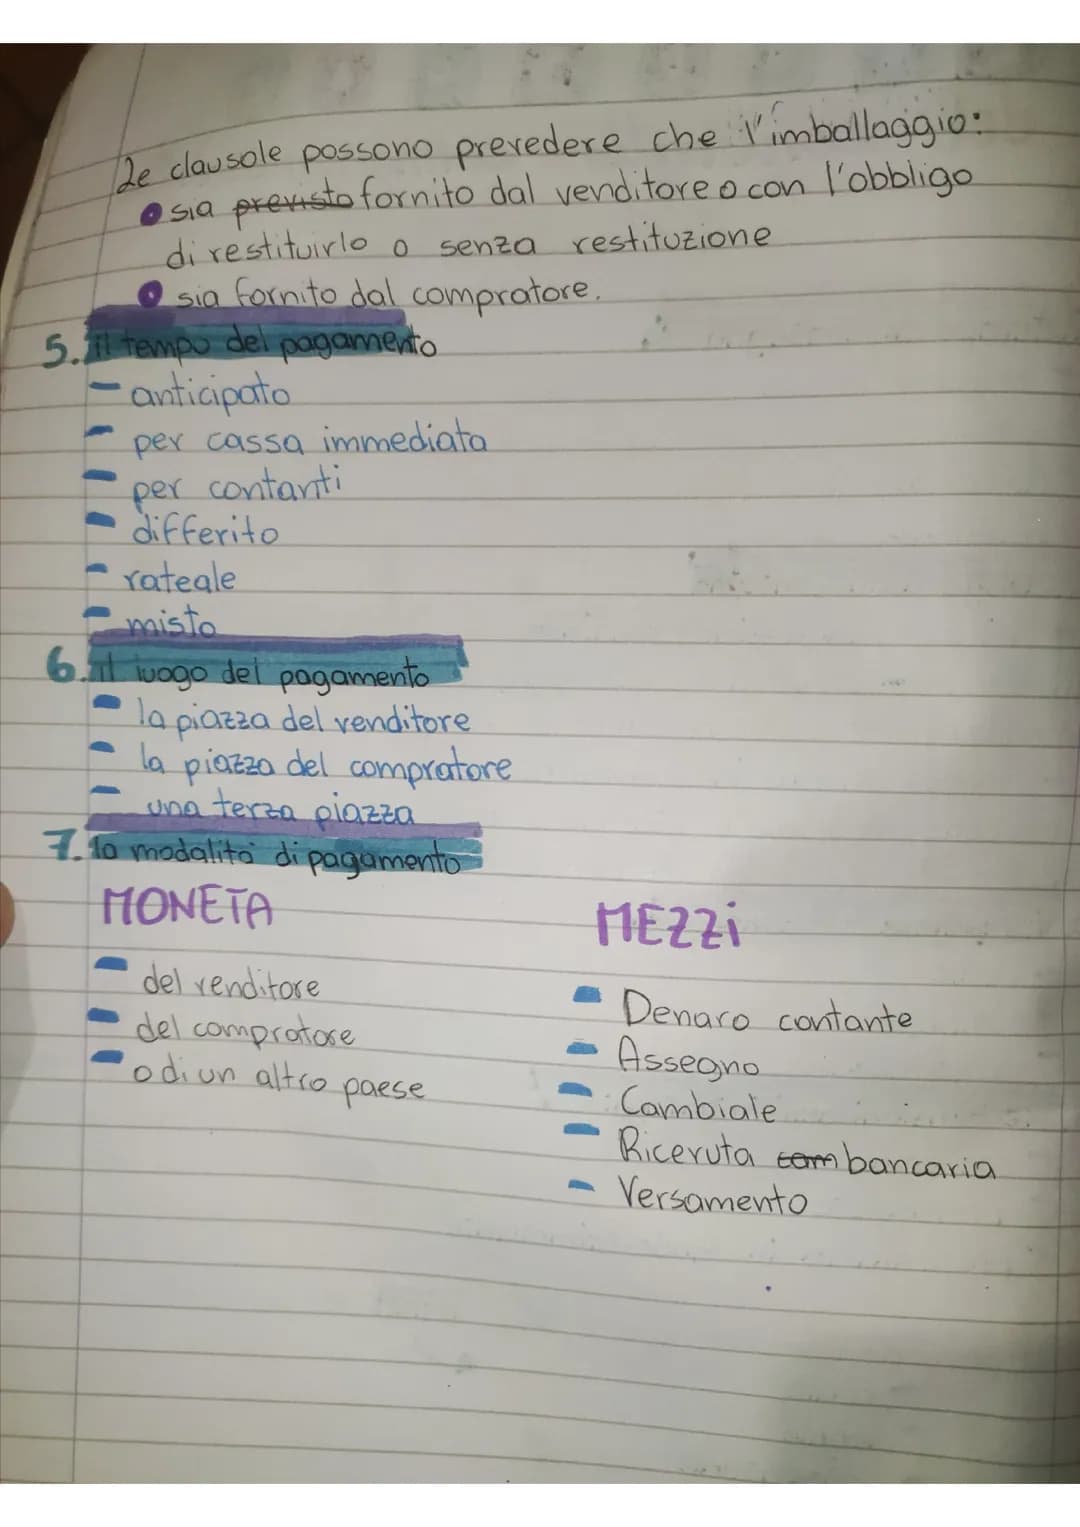 Le clausole possono prevedere che l'imballaggio:
sia previsto fornito dal venditore o con l'obbligo
di restituirlo o senza restituzione
sia fornito dal compratore.
5. il tempo del pagamento
- anticipato
- per cassa immediata
- per contanti
- differito
- rateale
- misto
6. il luogo del pagamento
- la piazza del venditore
- la piazza del compratore
- una terza piazza
7. la modalità di pagamento
MONETA
- del venditore
- del compratore
- o di un altro paese
MEZZi
- Denaro contante
- Assegno
- Cambiale
- Ricevuta com bancaria
- Versamento